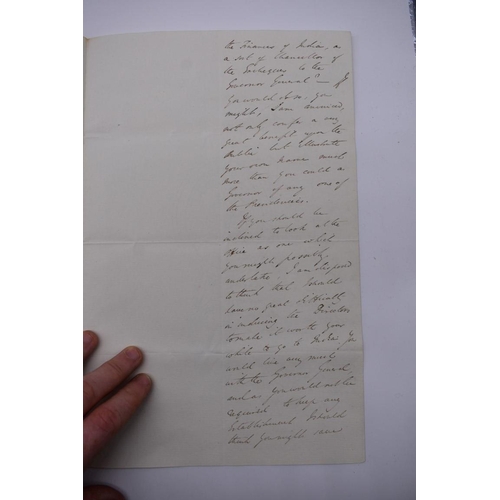 the Finances of India, as
a sort of Chancellor of
the Exchequer to the
Governor General? — If
you would do so, you
might, I am convinced,
not only confer a very
great benefit upon the
Public but illustrate
your own name much
more than you could as
Governor of any one of
the Presidencies.
If you should be
inclined to look at the
office as one which
you might possibly
undertake, I am disposed
to think that I should
have no great difficulty
in inducing the Directors
to make it worth your
while to go to India. You
would live very much
with the Governor General
and as you would not be
required to keep any
establishment I should
think you might save